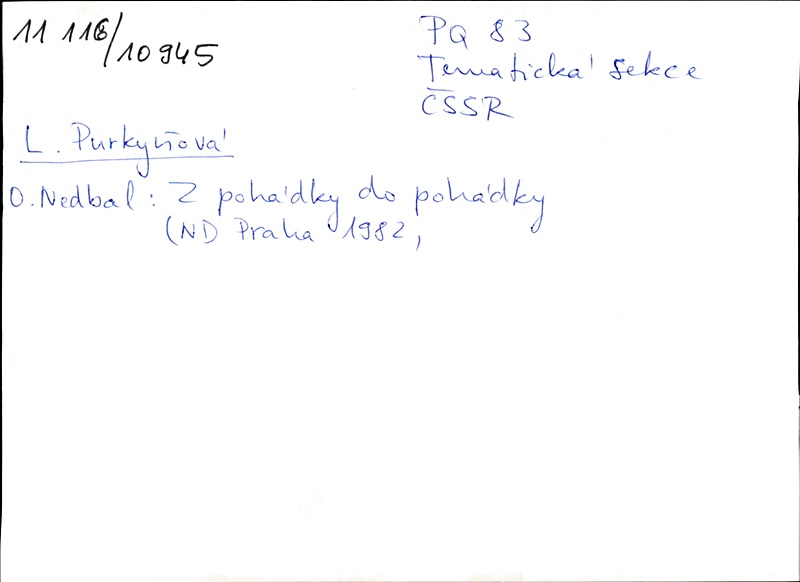 11 116/10945
PQ 83
Tematická sekce
ČSSR
L. Purkyňová
O. Nedbal: Z pohádky do pohádky
(ND Praha 1982,